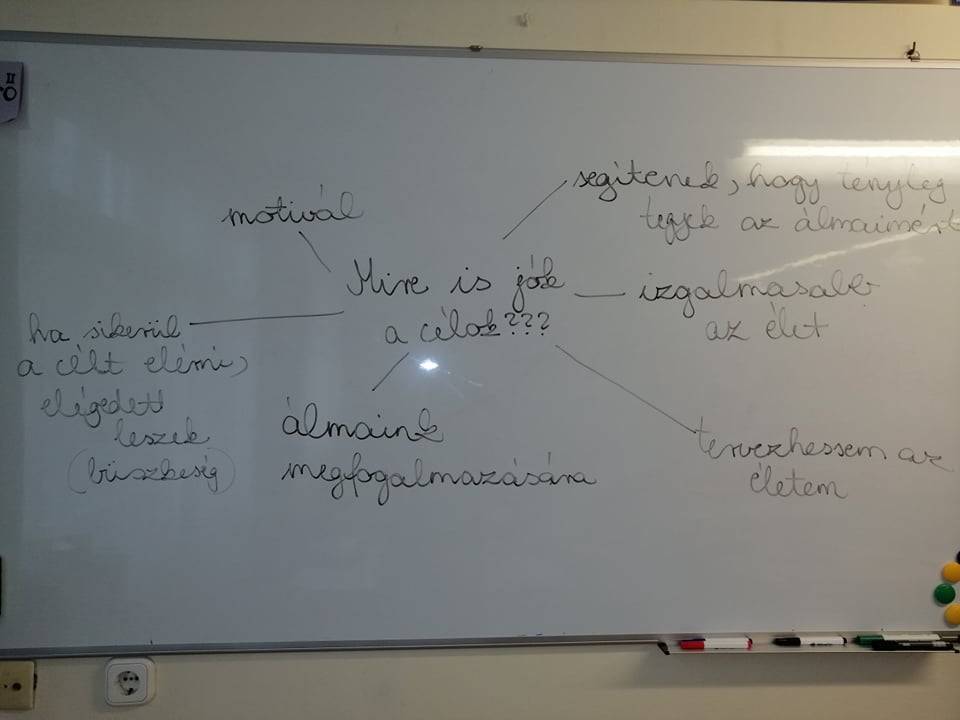 motivál
segítenek, hogy tényleg
tegyek az álmaimért
Mire is jók
a célok???
izgalmasabb
az élet
ha sikerül
a célt elérni,
elégedett
leszek
(büszkeség)
álmaink
megfogalmazására
tervezhessem az
életem